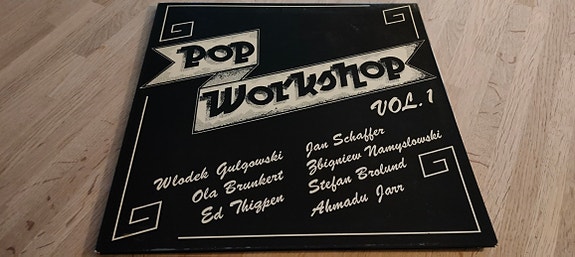 Pop
Workshop
VOL. 1
Wlodek Gulgowski
Ola Brunkert
Ed Thigpen
Jan Schaffer
Zbigniew Namyslowski
Stefan Brolund
Ahmadu Jarr